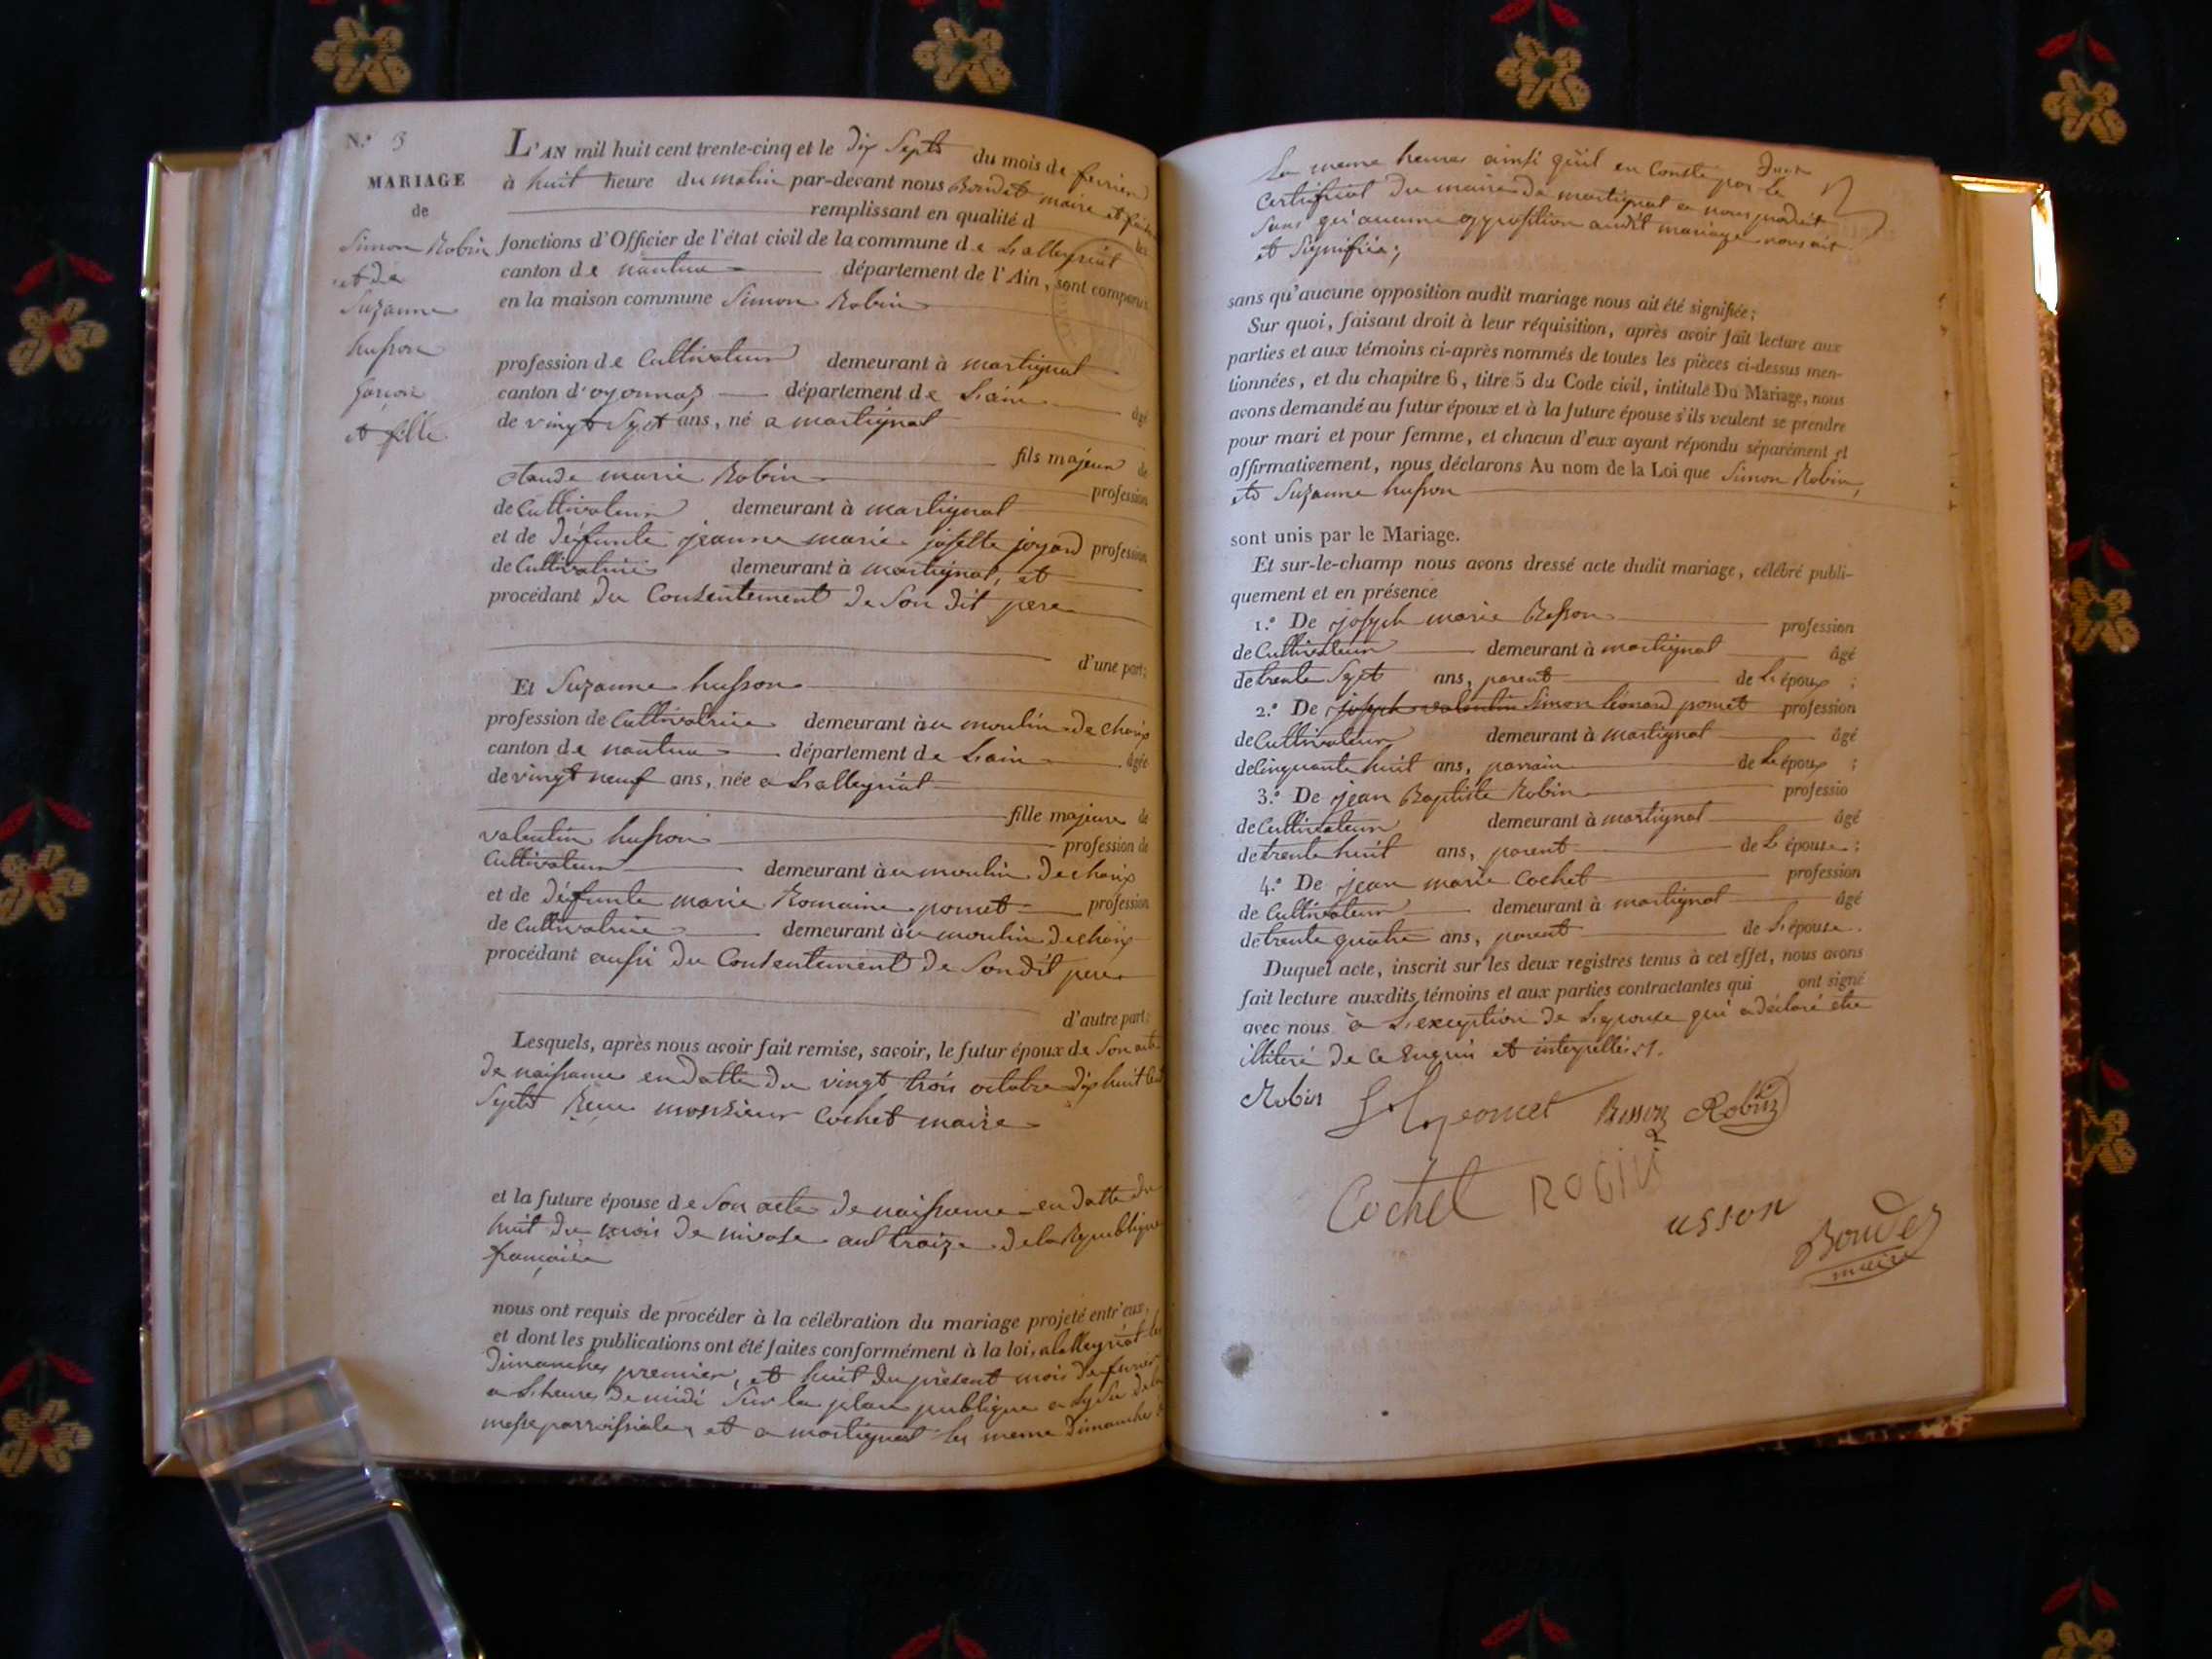 N.º 3
MARIAGE
de
Simon Robin
et de
Suzanne
husson
garcon
et fille
L'AN mil huit cent trente-cinq et le dix Sept du mois de fevrier
à huit heure du matin par-devant nous Boudet maire et
remplissant en qualité d les
fonctions d'Officier de l'état civil de la commune de Lalleyriat
canton de nantua département de l'Ain, sont comparus
en la maison commune Simon Robin
profession de Cultivateur demeurant à martignat
canton d'oyonnaz département de L'ain âgé
de vingt Sept ans, né a martignat
fils majeur de
claude marie Robin profession
de Cultivateur demeurant à martignat
et de défunte jeanne marie josette joyard profession
de Cultivatrice demeurant à martignat, et
procédant du Consentement de Son dit pere
d'une part;
Et Suzanne husson
profession de Cultivatrice demeurant à u moulin de charix
canton de nantua département de L'ain âgée
de vingt neuf ans, née a Lalleyriat
fille majeure de
valentin husson profession de
Cultivateur demeurant à u moulin de charix
et de défunte marie Romaine pomet profession
de Cultivatrice demeurant à u moulin de charix
procédant aussi du Consentement de Son dit pere
d'autre part;
Lesquels, après nous avoir fait remise, savoir, le futur époux de Son acte
de naissance en datte du vingt trois octobre dix huit Cent
Sept Reçu monsieur Cochet maire
et la future épouse de Son acte de naissance en datte du
huit du mois de nivose an treize de la Republique
francaise
nous ont requis de procéder à la célébration du mariage projeté entr'eux,
et dont les publications ont été faites conformément à la loi, a Lalleyriat les
dimanches premier, et huit du présent mois de fevrier
a L'heure de midi Sur la place publique a Lissu de la
messe parroissiale, et a martignat les meme dimanches
La meme heure ainsi qu'il en Conste par le
Certificat du maire de martignat a nous produit
Sans qu'aucune opposition audit mariage nous ait
et Signifiée;
sans qu'aucune opposition audit mariage nous ait été signifiée;
Sur quoi, faisant droit à leur réquisition, après avoir fait lecture aux
parties et aux témoins ci-après nommés de toutes les pièces ci-dessus men-
tionnées, et du chapitre 6, titre 5 du Code civil, intitulé Du Mariage, nous
avons demandé au futur époux et à la future épouse s'ils veulent se prendre
pour mari et pour femme, et chacun d'eux ayant répondu séparément et
affirmativement, nous déclarons Au nom de la Loi que Simon Robin,
et Suzanne husson
sont unis par le Mariage.
Et sur-le-champ nous avons dressé acte dudit mariage, célébré publi-
quement et en présence
1.º De joseph marie Besson profession
de Cultivateur demeurant à martignat âgé
de trente Sept ans, parent de L'époux ;
2.º De joseph valentin Simon Léonard pomet profession
de Cultivateur demeurant à martignat âgé
de Cinquante huit ans, parrain de L'époux ;
3.º De jean Baptiste Robin professio
de Cultivateur demeurant à martignat âgé
de trente huit ans, parent de L'épouse ;
4.º De jean marie Cochet profession
de Cultivateur demeurant à martignat âgé
de trente quatre ans, parent de L'épouse.
Duquel acte, inscrit sur les deux registres tenus à cet effet, nous avons
fait lecture auxdits témoins et aux parties contractantes qui ont signé
avec nous à L'exception de L'épouse qui a déclaré etre
illiteré de ce Enquis et interpellés.
Robin pomet Besson Robin
Cochet Robin
usson
Boudet
maire